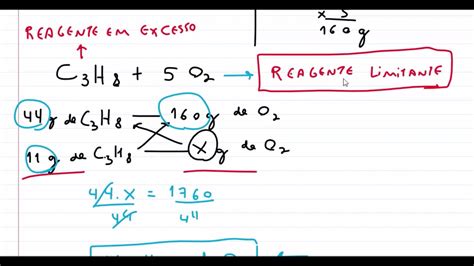 x 5
160g
REAGENTE EM EXCESSO
C3H8 + 5 O2 → REAGENTE LIMITANTE
44g de C3H8 160g de O2
11g. de C3H8 x g de O2
44.x = 1760
44 44